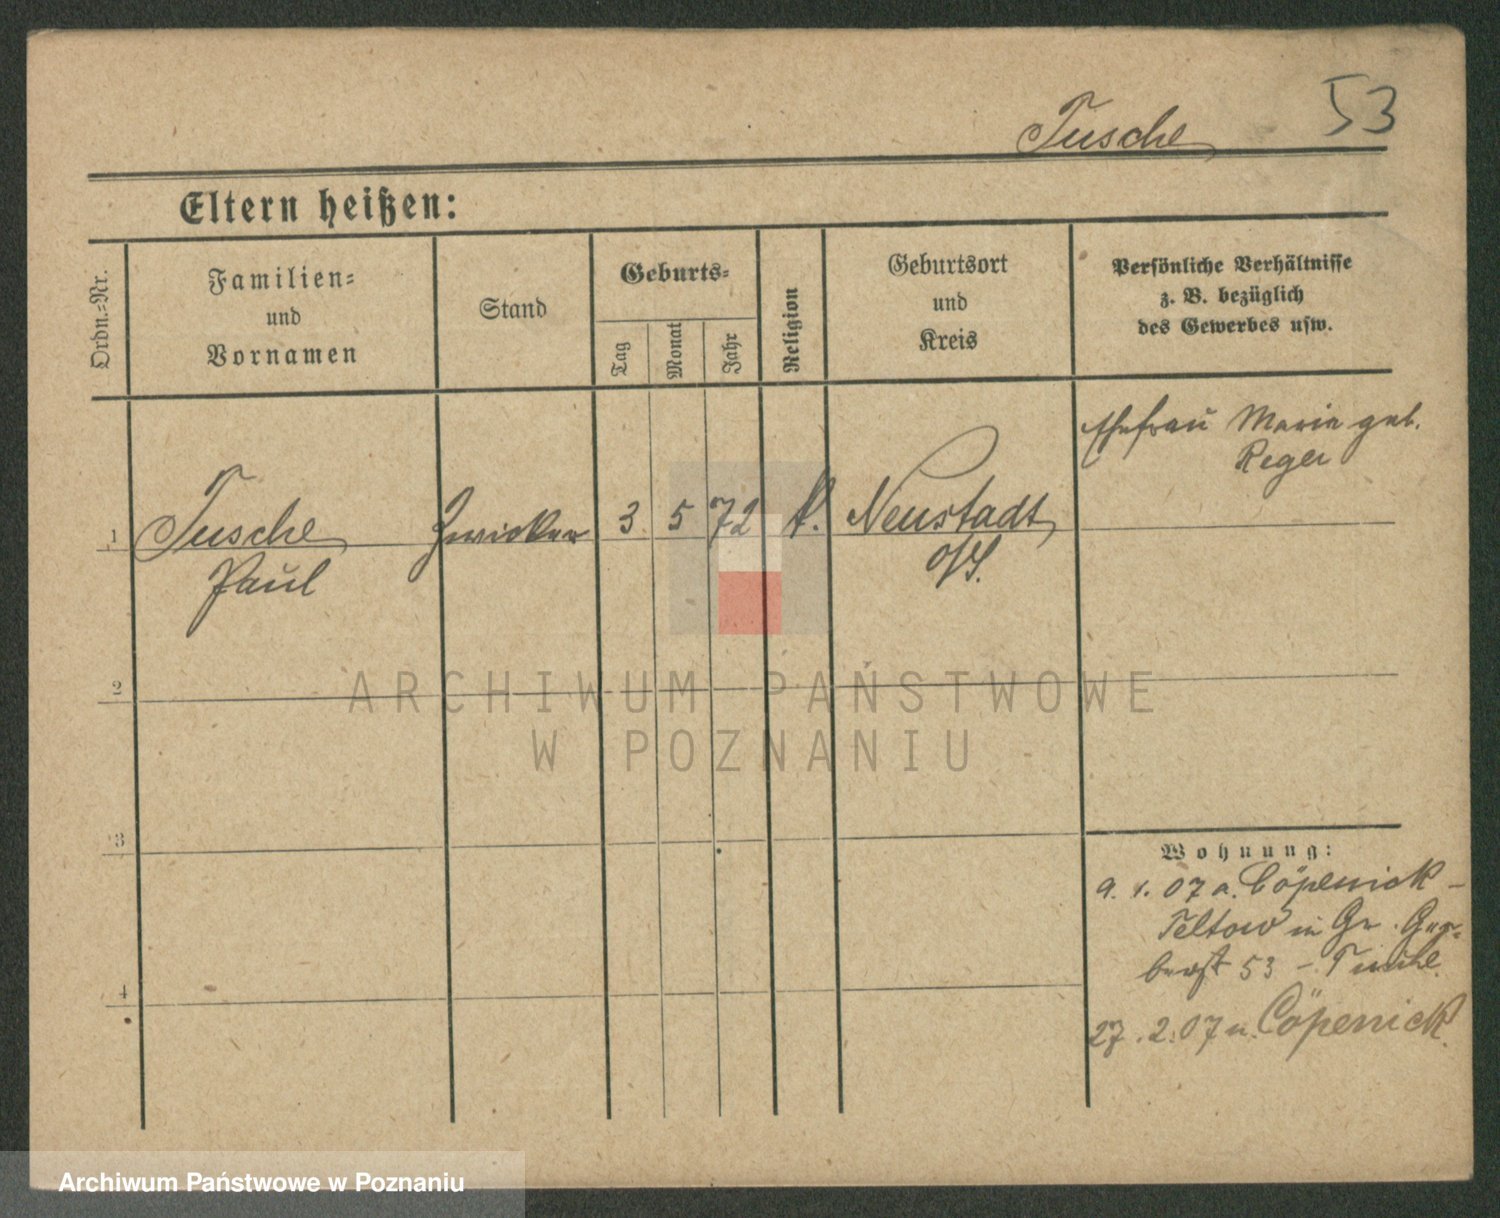 53
Tusche
Eltern heißen:
Ordn.-Nr.
Familien-
und
Vornamen
Stand
Geburts-
Tag
Monat
Jahr
Religion
Geburtsort
und
Kreis
Persönliche Verhältnisse
z. B. bezüglich
des Gewerbes usw.
Ehefrau Marie geb.
Reger
1 Tusche Zwicker 3 5 72 k. Neustadt
Paul O/S.
2
3
4
Wohnung:
9. 1. 07 a. Cöpenick -
Teltow in Gr.
53 -
27. 2. 07 n. Cöpenick.
ARCHIWUM PAŃSTWOWE
W POZNANIU
Archiwum Państwowe w Poznaniu